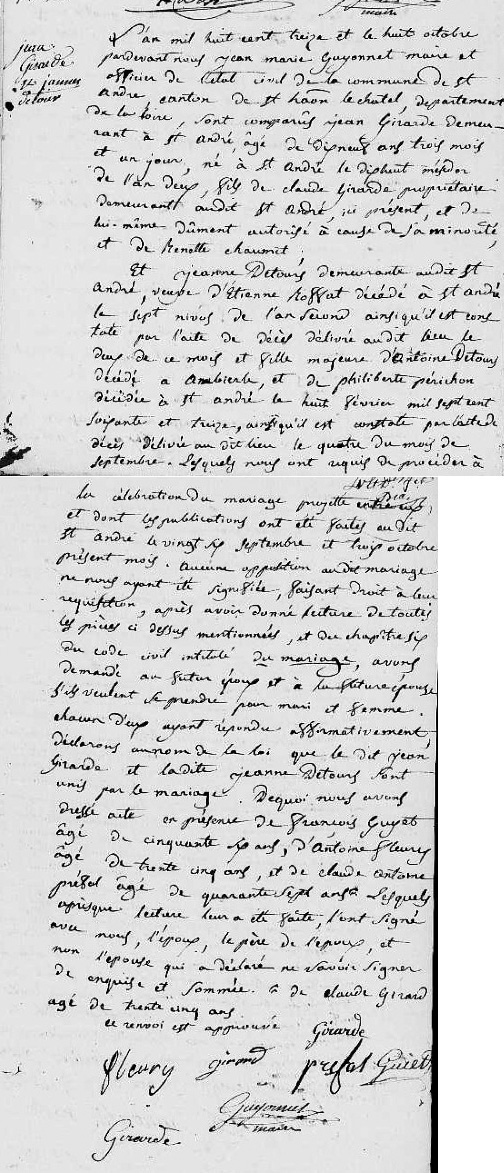 maire
jean
Girarde
et jeanne
detour
L'an mil huit cent treize et le huit octobre
pardevant nous jean marie Guyonnet maire et
officier de l'état civil de la commune de st
andré canton de st haon le chatel, departement
de la loire, sont comparus jean Girarde demeu-
rant à st andré, âgé de dixneuf ans trois mois
et un jour, né à st André le dixhuit mesidor
de l'an deux, fils de claude Girarde propriétaire
demeurant audit st André, ici présent, et de
lui-même dûment autorisé à cause de sa minorité
et de Benoîte chaumet
Et jeanne Detours demeurante audit st
André, veuve d'Etienne décédé à st andré
le sept nivos de l'an second ainsiqu'il est cons
taté par l'acte de décès délivré audit lieu le
deux de ce mois et fille majeure d'Antoine Detours
décédé a Ambierle, et de philiberte périchon
décédée à st andré le huit février mil sept cent
soixante et treize, ainsiqu'il est constaté par l'acte de
décès délivrée au dit lieu le quatre du mois de
septembre. Lesquels nous ont requis de procéder à
la célébration du mariage projetté entre eux,
et dont les publications ont été faites audit
st andré le vingt six septembre et trois octobre
présent mois. Aucune opposition audit mariage
ne nous ayant été signifiée, faisant droit à leur
requisition, après avoir donné lecture de toutes
les pièces ci dessus mentionnées, et du chapitre six
du code civil intitulé du mariage, avons
demandé au futur époux et à la future épouse
s'ils veulent se prendre pour mari et femme.
chacun d'eux ayant répondu affirmativement
déclarons au nom de la loi que le dit jean
Girarde et ladite jeanne Detours sont
unis par le mariage. Dequoi nous avons
dressé acte en présence de François Guyet
âgé de cinquante six ans, d'Antoine fleury
âgé de trente cinq ans, et de claude antoine
préfol âgé de quarante sept ans. Lesquels
aprisque lecture leur a été faite, l'ont signé
avec nous, l'époux, le père de l'époux, et
non l'epouse qui a déclaré ne savoir signer
de enquise et sommée. de claude Girard
agé de trente cinq ans
ce renvoi est approuvé Girarde
fleury girard prefol Guiet
Guyonnet
maire
Girarde